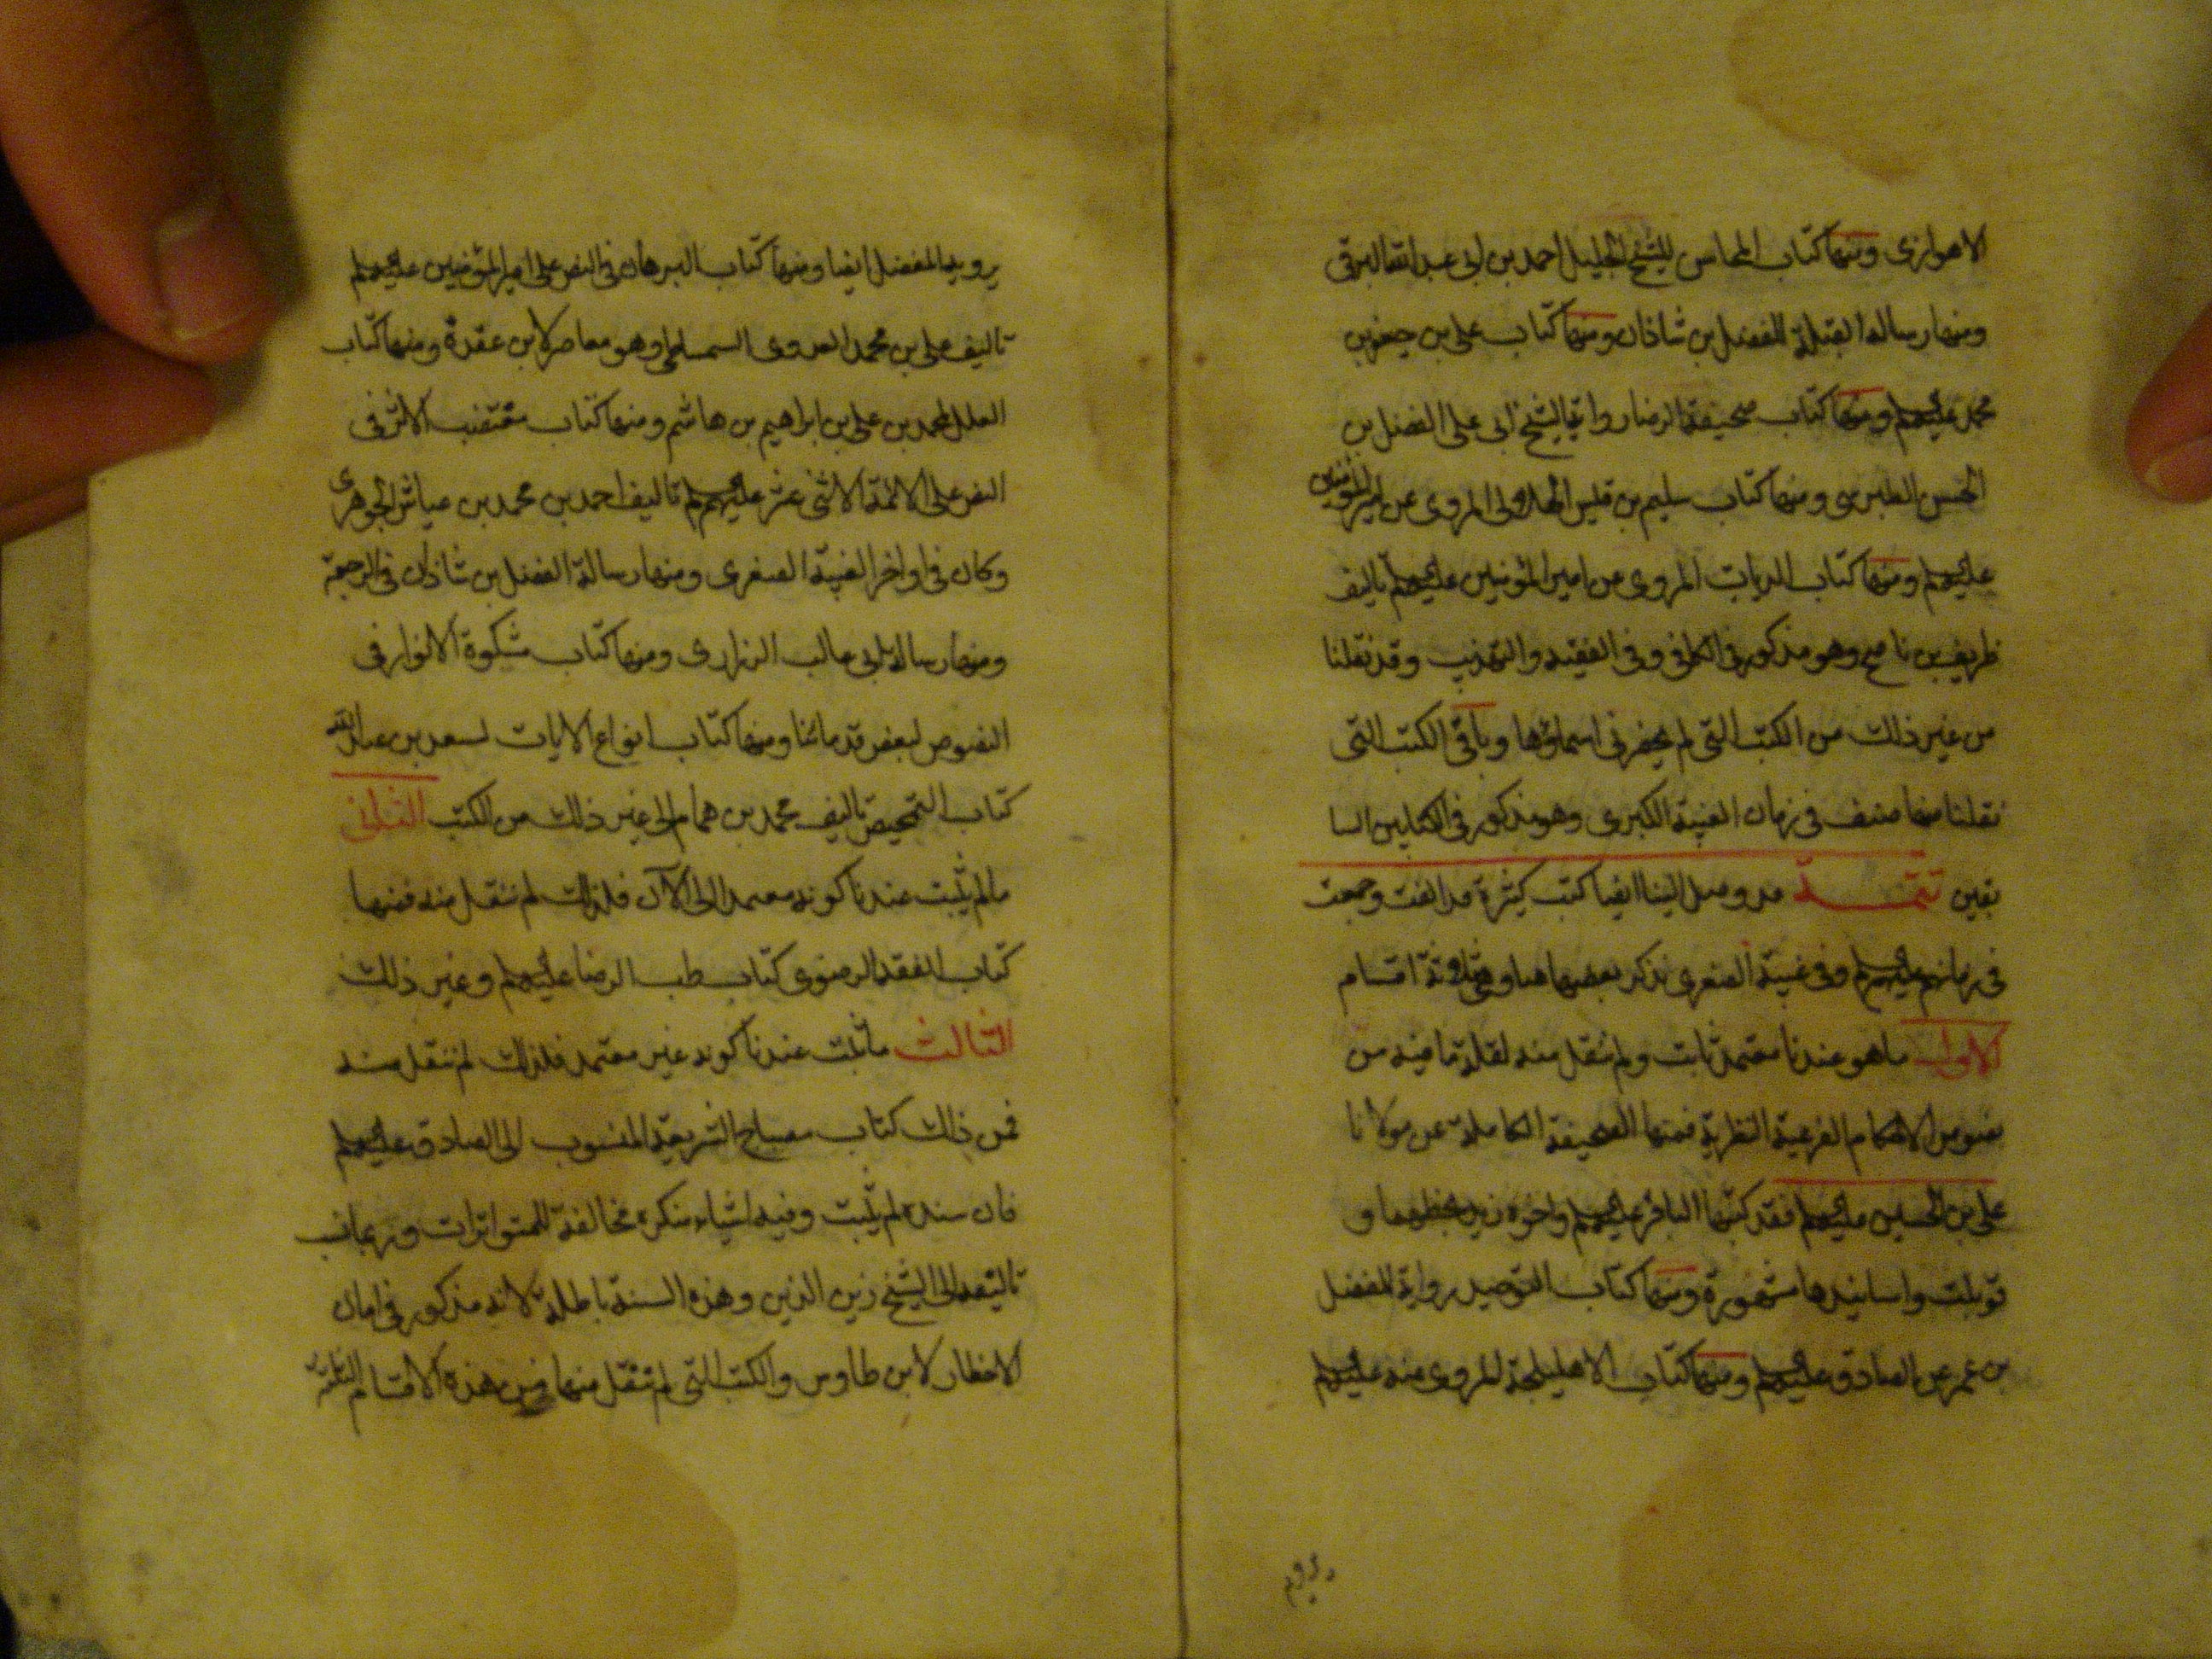 الاهوازى ومنها كتاب المحاسن للشيخ الجليل احمد بن ابى عبد الله البرقى
ومنها رسالة القبلة للفضل بن شاذان ومنها كتاب على بن جعفر بن
محمد عليهم ومنها كتاب صحيفة الرضا رواية الشيخ ابى على الفضل بن
الحسن الطبرسى ومنها كتاب سليم بن قيس الهلالى المروى عن امير المؤمنين
عليهم ومنها كتاب الديات المروى عن امير المؤمنين عليهم تاليف
ظريف بن ناصح وهو مذكور فى الكافى وفى الفقيه والتهذيب وقد نقلنا
من غير ذلك من الكتب التى لم يحضرنى اسماؤها وباقى الكتب التى
نقلنا منها صنف فى زمان الغيبة الكبرى وهو مذكور فى الكتابين السا
بقين تتمة قد وصل الينا ايضا كتب كثيرة قد الفت وجمعت
فى زمانهم عليهم وفى غيبة الصغرى نذكر بعضها هنا وهى ثلاثة اقسام
الاول ما هو عندنا معتمد ثابت ولم ننقل منه لقلة ما فيه من
نصوص الاحكام الفرعية النظرية فمنها الصحيفة الكاملة عن مولانا
على بن الحسين عليهم فقد كتبها الباقر عليهم واخوه زيد بخطهما و
قوبلت واسانيدها مشهورة ومنها كتاب التوحيد رواية المفضل
بن عمر عن الصادق عليهم ومنها كتاب الاهليلجة المروى عنه عليهم
يرويه المفضل ايضا ومنها كتاب البرهان فى النص على امير المؤمنين عليهم
تاليف على بن محمد العدوى السمساطى وهو معاصر لابن عقدة ومنها كتاب
العلل لمحمد بن على بن ابراهيم بن هاشم ومنها كتاب مقتضب الاثر فى
النص على الائمة الاثنى عشر عليهم تاليف احمد بن محمد بن عياش الجوهرى
وكان فى اواخر الغيبة الصغرى ومنها رسالة الفضل بن شاذان فى الرجعة
ومنها رسالة ابى غالب الزرارى ومنها كتاب مشكوة الانوار فى
النصوص لبعض قدمائنا ومنها كتاب انواع الايات لسعد بن عبد الله
كتاب التمحيص تاليف محمد بن همام الى غير ذلك من الكتب الثانى
ما لم يثبت عندنا كونه معتمدا الى الآن فلذلك لم ننقل منه فمنها
كتاب الفقه الرضوى كتاب طب الرضا عليهم وغير ذلك
الثالث ما ثبت عندنا كونه غير معتمد فلذلك لم ننقل منه
فمن ذلك كتاب مصباح الشريعة المنسوب الى الصادق عليهم
فان سنده لم يثبت وفيه اشياء منكره مخالفة للمتواترات وربما نسب
تاليفه الى الشيخ زين الدين وهذه النسبة باطلة لانه مذكور فى امان
الاخطار لابن طاوس والكتب التى لم ننقل منها من هذه الاقسام الثلاثة